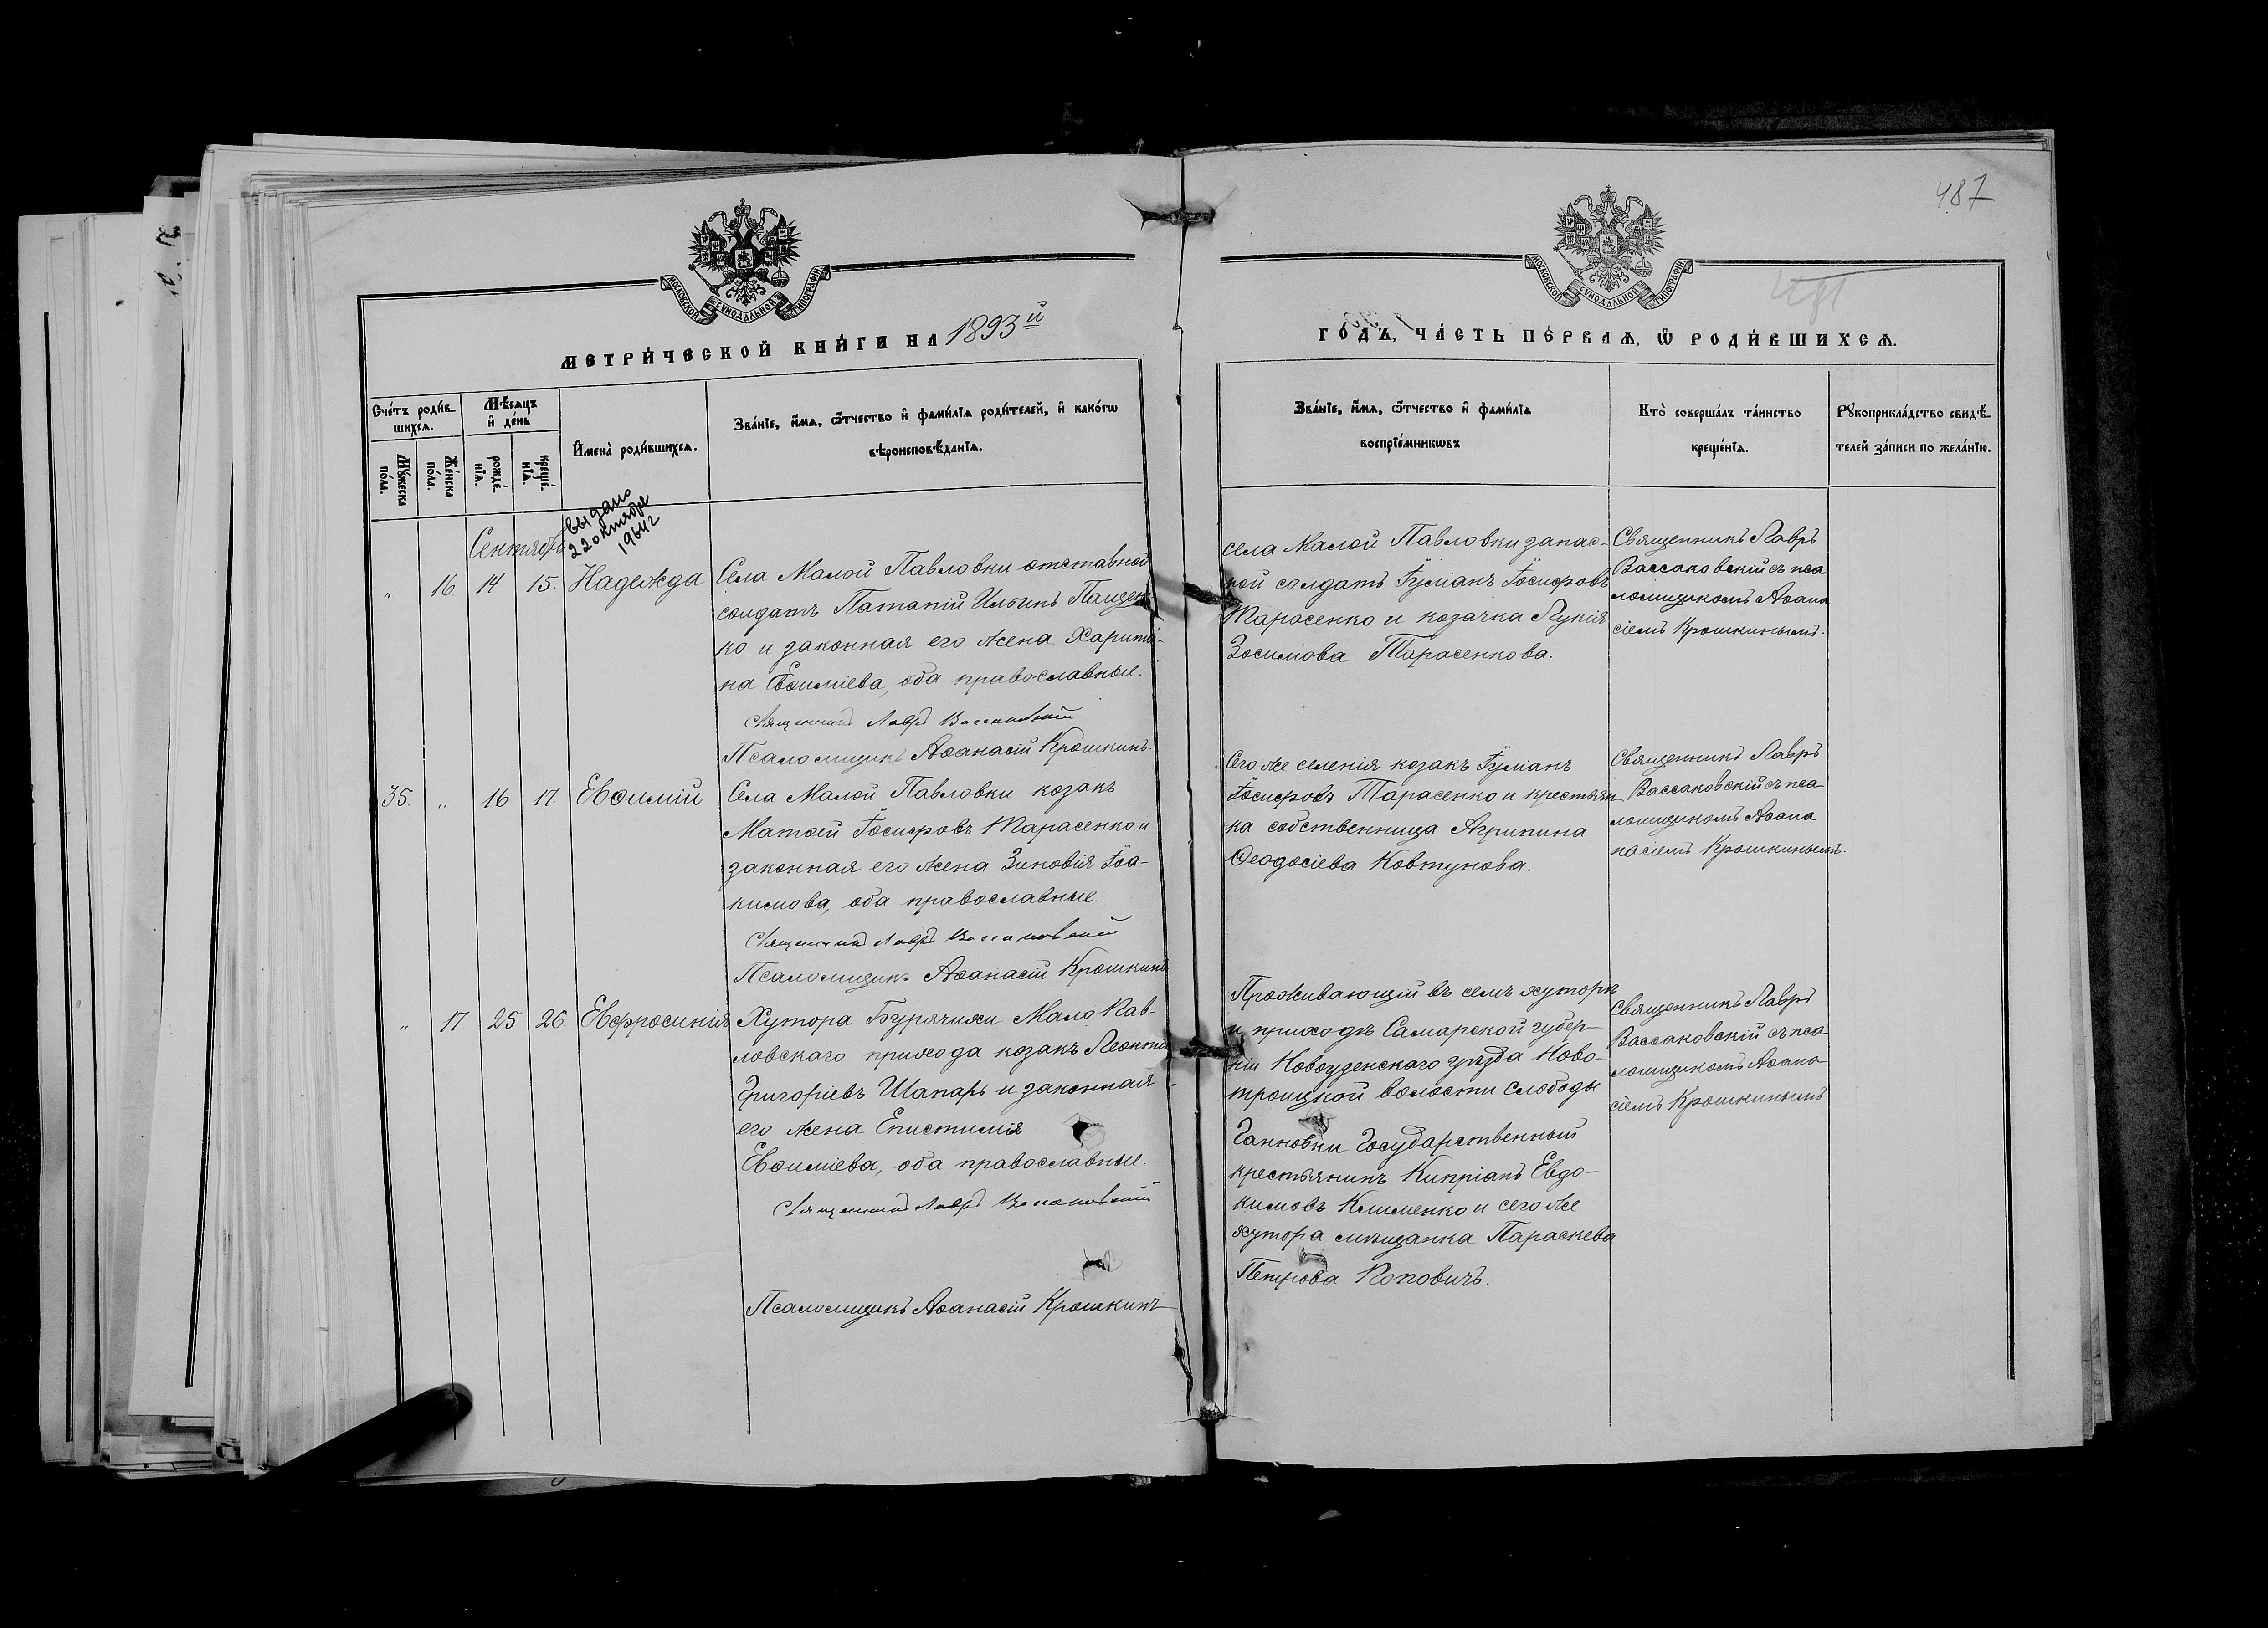 487
МОСКОВСКОЙ СѴНОДАЛЬНОЙ ТИПОГРАФІИ
МОСКОВСКОЙ СѴНОДАЛЬНОЙ ТИПОГРАФІИ
МЕТРИ́ЧЕСКОЙ КНИ́ГИ НА 1893й
ГО́ДЪ, ЧА́СТЬ ПЕ́РВАѦ, Ѽ РОДИ́ВШИХСѦ.
Сче́тъ роди́в-
шихсѧ.
Мꙋ́жеска
по́ла.
Же́нска
по́ла.
Мѣ́сѧцъ
и҆ де́нь
рожде́-
нїѧ.
креще́-
нїѧ.
И҆мена̀ роди́вшихсѧ.
Зва́нїе, и҆́мѧ, ѻ҆́тчество и҆ фами́лїѧ роди́телей, и҆ како́гѡ
вѣроисповѣ́данїѧ.
Зва́нїе, и҆́мѧ, ѻ҆́тчество и҆ фами́лїѧ
воспрїе́мникѡвъ
Кто̀ соверша́лъ та́инство
креще́нїѧ.
Рꙋкоприкла́дство свидѣ́-
телей за́писи по жела́нїю.
Сентябрь
выдано
22 октября
1964 г
" 16 14 15. Надежда
Села Малой Павловки отставной
солдатъ Патапій Ильинъ Пащен
ко и законная его жена Харити-
на Евѳиміева, оба православные.
Священникъ Лавръ Вассаковскій
Псаломщикъ Аѳанасій Крошкинъ.
села Малой Павловки запас-
ной солдатъ Іуліанъ Іосифовъ
Тарасенко и козачка Лукія
Зосимова Тарасенкова.
Священникъ Лавръ
Вассаковскій съ пса
ломщикомъ Аѳана
сіемъ Крошкинымъ.
35. " 16 17. Евѳимій
Села Малой Павловки козакъ
Матѳей Іосифовъ Тарасенко и
законная его жена Зиновія Іоа-
кимова, оба православные.
Священникъ Лавръ Вассаковскій
Псаломщикъ Аѳанасій Крошкинъ
Сего же селенія козакъ Іуліанъ
Іосифовъ Тарасенко и крестьян
ка собственница Агрипина
Ѳеодосіева Ковтунова.
Священникъ Лавръ
Вассаковскій съ пса
ломщикомъ Аѳана
насіемъ Крошкинымъ.
" 17 25 26 Евфросинія
Хутора Бурячихи Мало Пав-
ловскаго прихода козакъ Леонтій
Григоріевъ Шапарь и законная
его жена Епистимія
Евѳиміева, оба православные.
Священникъ Лавръ Вассаковскій
Псаломщикъ Аѳанасій Крошкинъ
Проживающій въ семъ хуторѣ
и приходѣ Самарской губер-
ніи Новоузенскаго уѣзда Ново-
троицкой волости слободы
Ганновки Государственный
крестьянинъ Кипріанъ Евдо-
кимовъ Клименко и сего же
хутора мѣщанка Параскева
Петрова Поповичъ.
Священникъ Лавръ
Вассаковскій съ пса
ломщикомъ Аѳана
сіемъ Крошкинымъ.